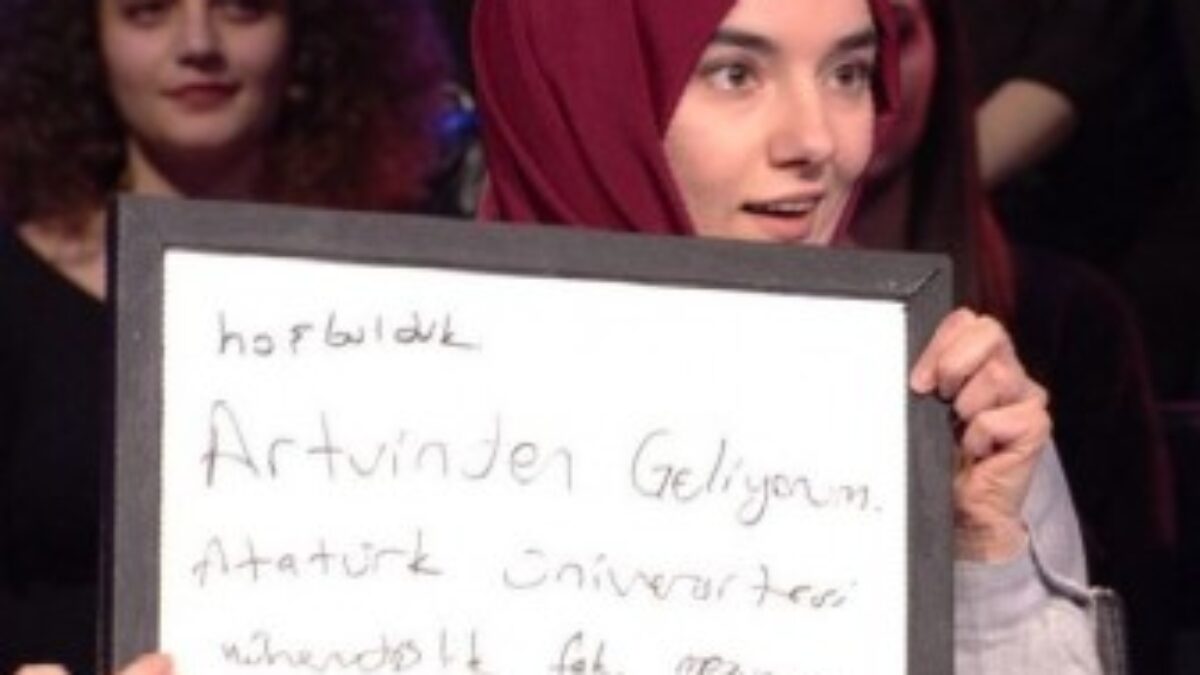 hoşbulduk
Artvinden Geliyorum.
Atatürk üniversitesi
mühendislik fak.